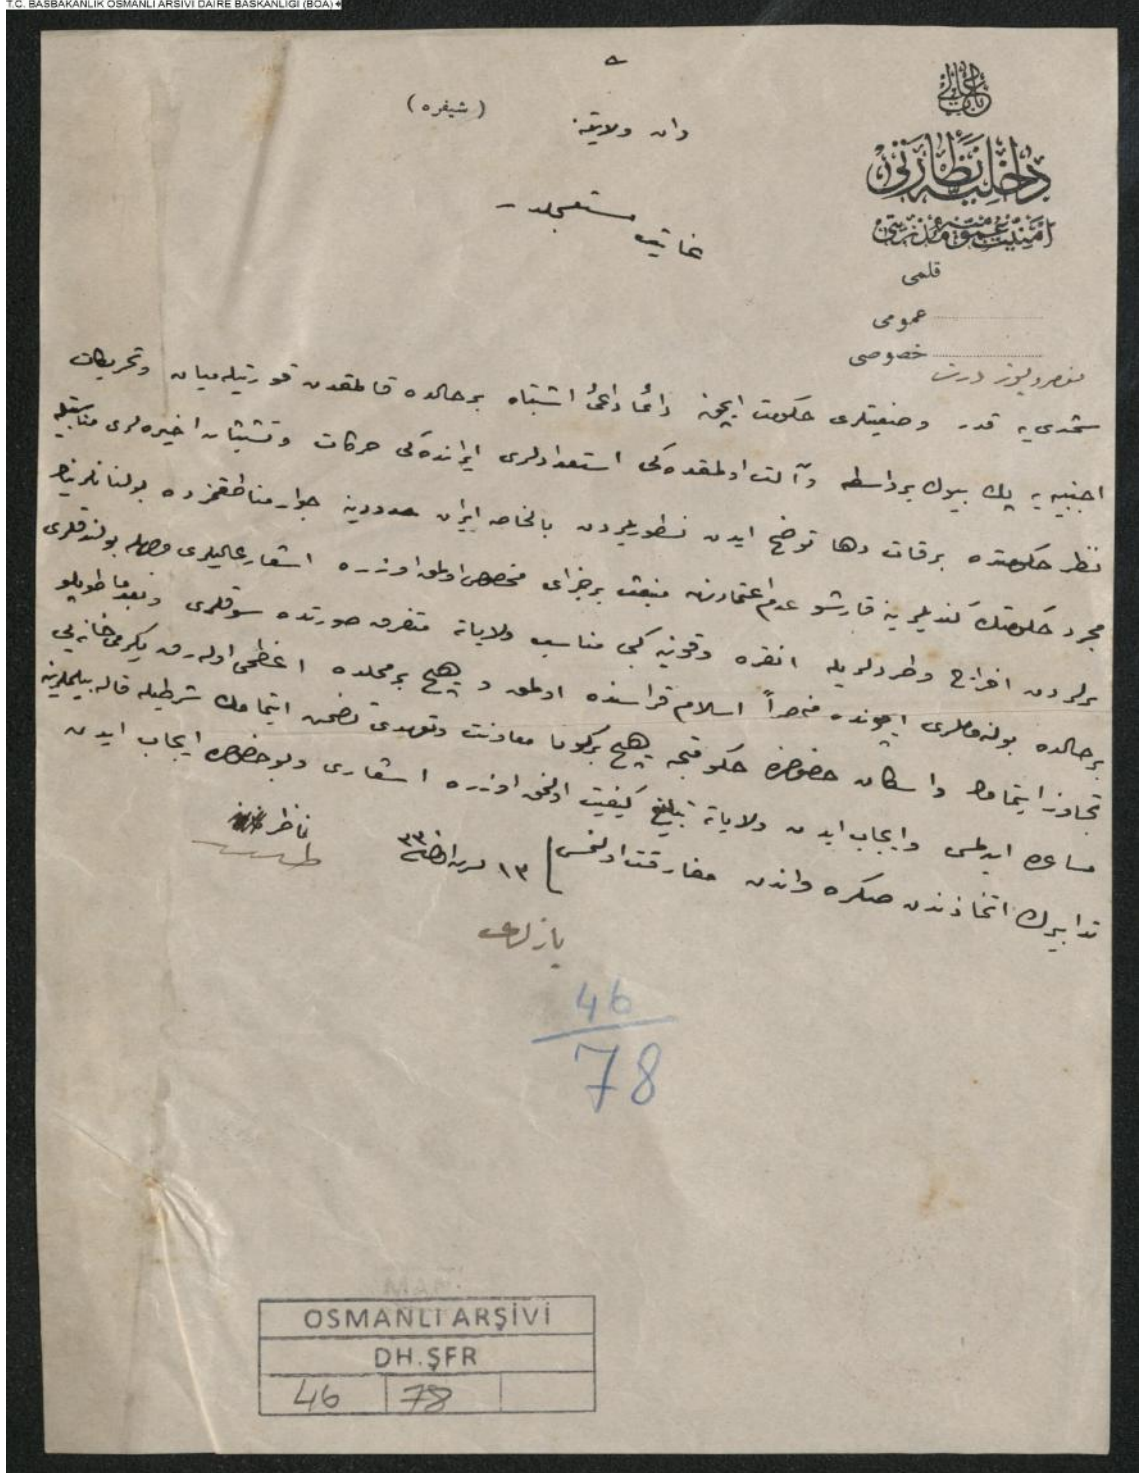 T.C. BAŞBAKANLIK OSMANLI ARŞİVİ DAİRE BAŞKANLIĞI (BOA)
باب عالی
داخلیه نظارتی
امنیت عمومیه مدیریتی
قلمی
عمومی
خصوصی
(شیفره)
وان ولایتنه
غایت مستعجلدر
شمدی‌یه قدر وضعیتلری حکومت ایچون دائما داعئ اشتباه برحالده قالمقدن قورتیله‌میان و تحریکات
اجنبیه‌یه پك بیوك برواسطه و آلت اولمقده‌کی استعدادلری ایرانده‌کی حرکات و تشبثات اخیره‌لری مناسبتیله
نظر حکومتده برقات دها توضح ایدن نسطوریلردن بالخاصه ایران حدودینه جوار مناطقمزده بولنانلرینك
مجرد حکومتك کندیلرینه قارشو عدم اعتمادندن منبعث برجزای مخصوص اولمق اوزره اشعار عالیلری وجهله بولندقلری
یرلردن اخراج و طردلریله انقره و قونیه کبی مناسب ولایاته متفرق صورتده سوقلری و بعدما طوپلو
برحالده بولنمامه‌لری ایچون ده منحصراً اسلام قراسنده اولمق و هیچ برمحلده اعظمی اوله‌رق یکرمی خانه‌یی
تجاوز ایتمامك و اسکان خصوصنده حکومتجه هیچ برکونا معاونت و تعهدی تضمن ایتمامك شرطیله قاله‌بیلملرینه
مساعده ایدلمسی و ایجاب ایدن ولایاته تبلیغ کیفیت اولنمق اوزره اشعاری و بوخصوصده ایجاب ایدن
تدابیرك اتخاذندن صکره واندن مفارقت اولنمسی
١٣ تشرین اول سنه ٣٣٠
ناظر
طلعت
یازلدی
46
78
OSMANLI ARŞİVİ
DH.ŞFR
46 78